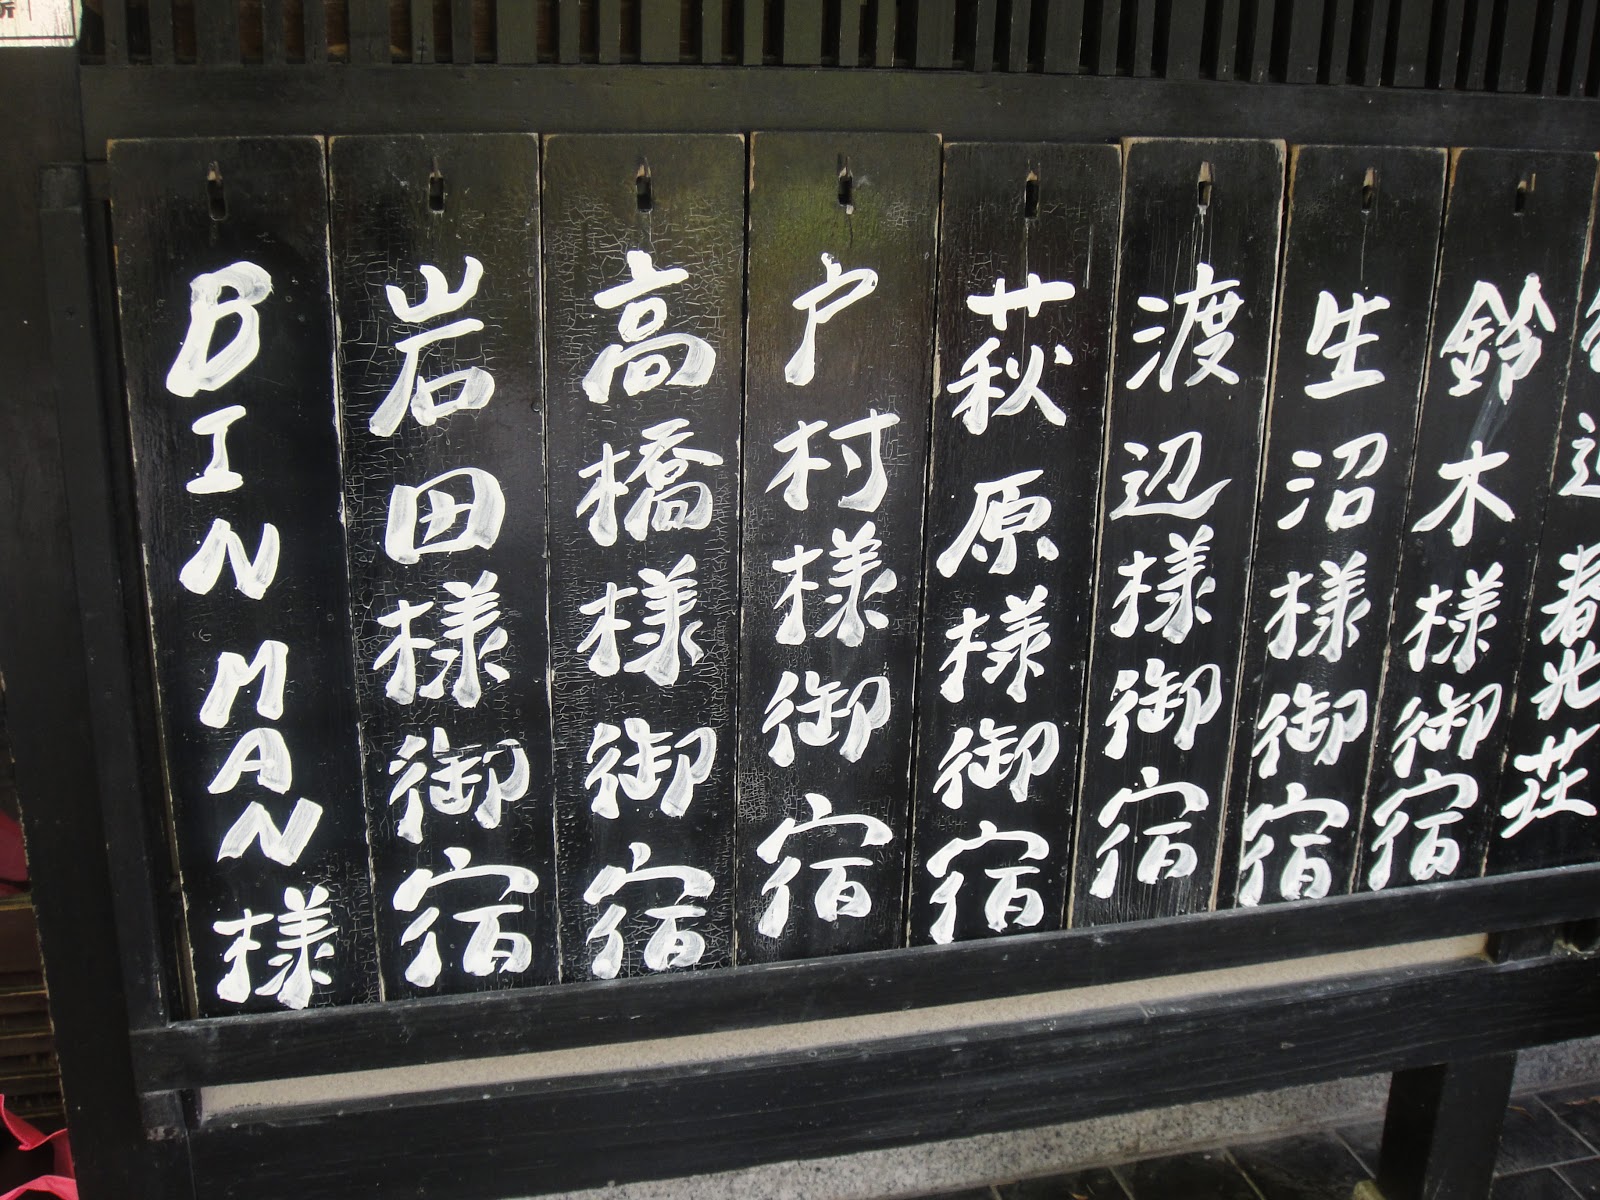 鈴木様御宿
生沼様御宿
渡辺様御宿
萩原様御宿
戸村様御宿
高橋様御宿
岩田様御宿
BIN MAN様
春光荘